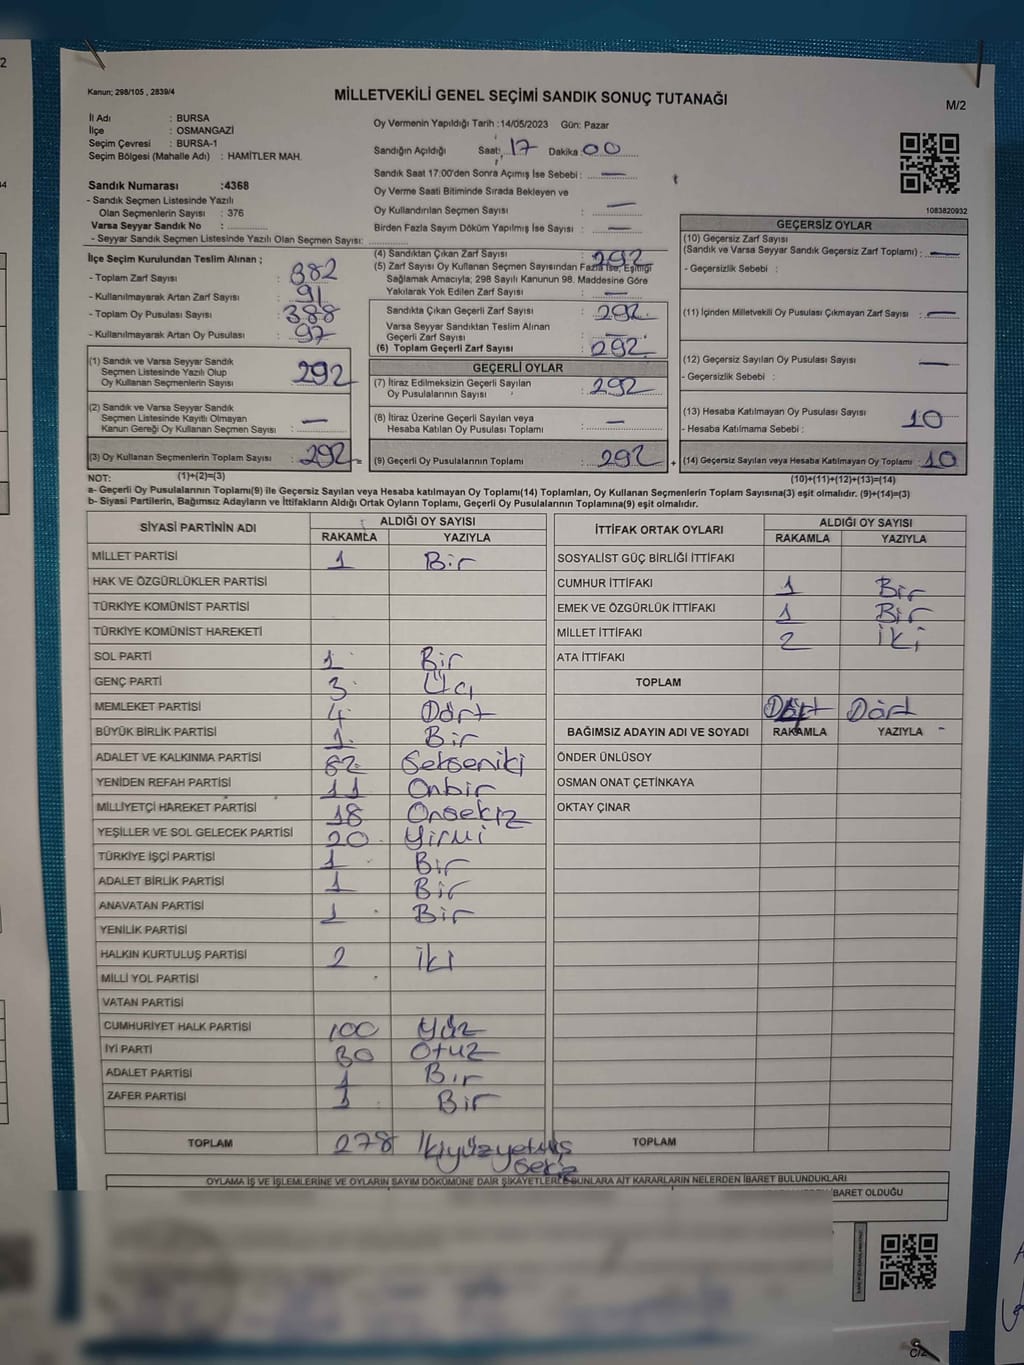 Kanun; 298/105 , 2839/4
MİLLETVEKİLİ GENEL SEÇİMİ SANDIK SONUÇ TUTANAĞI
M/2
İl Adı : BURSA
İlçe : OSMANGAZİ
Seçim Çevresi : BURSA-1
Seçim Bölgesi (Mahalle Adı) : HAMİTLER MAH.
Sandık Numarası :4368
- Sandık Seçmen Listesinde Yazılı
Olan Seçmenlerin Sayısı : 376
Varsa Seyyar Sandık No :
- Seyyar Sandık Seçmen Listesinde Yazılı Olan Seçmen Sayısı:
İlçe Seçim Kurulundan Teslim Alınan ;
- Toplam Zarf Sayısı : 382
- Kullanılmayarak Artan Zarf Sayısı : 91
- Toplam Oy Pusulası Sayısı : 388
- Kullanılmayarak Artan Oy Pusulası : 97
(1) Sandık ve Varsa Seyyar Sandık
Seçmen Listesinde Yazılı Olup
Oy Kullanan Seçmenlerin Sayısı : 292
(2) Sandık ve Varsa Seyyar Sandık
Seçmen Listesinde Kayıtlı Olmayan
Kanun Gereği Oy Kullanan Seçmen Sayısı : —
(3) Oy Kullanan Seçmenlerin Toplam Sayısı : 292 =
Oy Vermenin Yapıldığı Tarih :14/05/2023 Gün: Pazar
Sandığın Açıldığı Saat: 17 Dakika : 00
Sandık Saat 17:00'den Sonra Açımış İse Sebebi : —
Oy Verme Saati Bitiminde Sırada Bekleyen ve
Oy Kullandırılan Seçmen Sayısı : —
Birden Fazla Sayım Döküm Yapılmış İse Sayısı : —
(4) Sandıktan Çıkan Zarf Sayısı : 292
(5) Zarf Sayısı Oy Kullanan Seçmen Sayısından Fazla İse, Eşitliği
Sağlamak Amacıyla; 298 Sayılı Kanunun 98. Maddesine Göre
Yakılarak Yok Edilen Zarf Sayısı : —
Sandıkta Çıkan Geçerli Zarf Sayısı : 292
Varsa Seyyar Sandıktan Teslim Alınan
Geçerli Zarf Sayısı : —
(6) Toplam Geçerli Zarf Sayısı : 292
GEÇERLİ OYLAR
(7) İtiraz Edilmeksizin Geçerli Sayılan
Oy Pusulalarının Sayısı : 292
(8) İtiraz Üzerine Geçerli Sayılan veya
Hesaba Katılan Oy Pusulası Toplamı : —
(9) Geçerli Oy Pusulalarının Toplamı : 292 +
1083820932
GEÇERSİZ OYLAR
(10) Geçersiz Zarf Sayısı
(Sandık ve Varsa Seyyar Sandık Geçersiz Zarf Toplamı) : —
- Geçersizlik Sebebi :
(11) İçinden Milletvekili Oy Pusulası Çıkmayan Zarf Sayısı : —
(12) Geçersiz Sayılan Oy Pusulası Sayısı —
- Geçersizlik Sebebi :
(13) Hesaba Katılmayan Oy Pusulası Sayısı 10
- Hesaba Katılmama Sebebi :
(14) Geçersiz Sayılan veya Hesaba Katılmayan Oy Toplamı : 10
NOT: (1)+(2)=(3) (10)+(11)+(12)+(13)=(14)
a- Geçerli Oy Pusulalarının Toplamı(9) ile Geçersiz Sayılan veya Hesaba katılmayan Oy Toplamı(14) Toplamları, Oy Kullanan Seçmenlerin Toplam Sayısına(3) eşit olmalıdır. (9)+(14)=(3)
b- Siyasi Partilerin, Bağımsız Adayların ve İttifakların Aldığı Ortak Oyların Toplamı, Geçerli Oy Pusulalarının Toplamına(9) eşit olmalıdır.
SİYASİ PARTİNİN ADI ALDIĞI OY SAYISI
RAKAMLA YAZIYLA
MİLLET PARTİSİ 1 Bir
HAK VE ÖZGÜRLÜKLER PARTİSİ
TÜRKİYE KOMÜNİST PARTİSİ
TÜRKİYE KOMÜNİST HAREKETİ
SOL PARTİ 1 Bir
GENÇ PARTİ 3 Üç
MEMLEKET PARTİSİ 4 Dört
BÜYÜK BİRLİK PARTİSİ 1 Bir
ADALET VE KALKINMA PARTİSİ 82 Sekseniki
YENİDEN REFAH PARTİSİ 11 Onbir
MİLLİYETÇİ HAREKET PARTİSİ 18 Onsekiz
YEŞİLLER VE SOL GELECEK PARTİSİ 20 Yirmi
TÜRKİYE İŞÇİ PARTİSİ 1 Bir
ADALET BİRLİK PARTİSİ 1 Bir
ANAVATAN PARTİSİ 1 Bir
YENİLİK PARTİSİ
HALKIN KURTULUŞ PARTİSİ 2 İki
MİLLİ YOL PARTİSİ
VATAN PARTİSİ
CUMHURİYET HALK PARTİSİ 100 Yüz
İYİ PARTİ 30 Otuz
ADALET PARTİSİ 1 Bir
ZAFER PARTİSİ 1 Bir
TOPLAM 278 İkiyüzyetmiş
sekiz
İTTİFAK ORTAK OYLARI ALDIĞI OY SAYISI
RAKAMLA YAZIYLA
SOSYALİST GÜÇ BİRLİĞİ İTTİFAKI
CUMHUR İTTİFAKI 1 Bir
EMEK VE ÖZGÜRLÜK İTTİFAKI 1 Bir
MİLLET İTTİFAKI 2 İki
ATA İTTİFAKI
TOPLAM
Dört Dört
BAĞIMSIZ ADAYIN ADI VE SOYADI RAKAMLA YAZIYLA
ÖNDER ÜNLÜSOY
OSMAN ONAT ÇETİNKAYA
OKTAY ÇINAR
TOPLAM
OYLAMA İŞ VE İŞLEMLERİNE VE OYLARIN SAYIM DÖKÜMÜNE DAİR ŞİKAYETLERLE BUNLARA AİT KARARLARIN NELERDEN İBARET BULUNDUKLARI
İBARET OLDUĞU
C/2